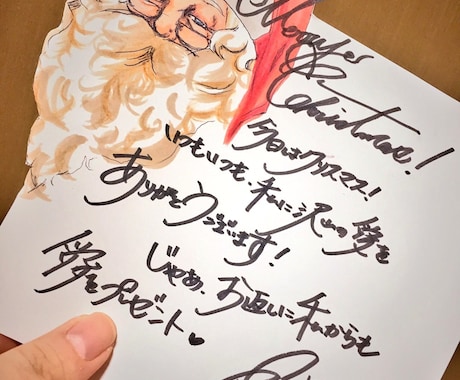 Christmas!
今日はクリスマス!
いつもいつも、私に沢山の愛を
ありがとうございます!
じゃあ、お返いに私からも
愛をプレゼント♥